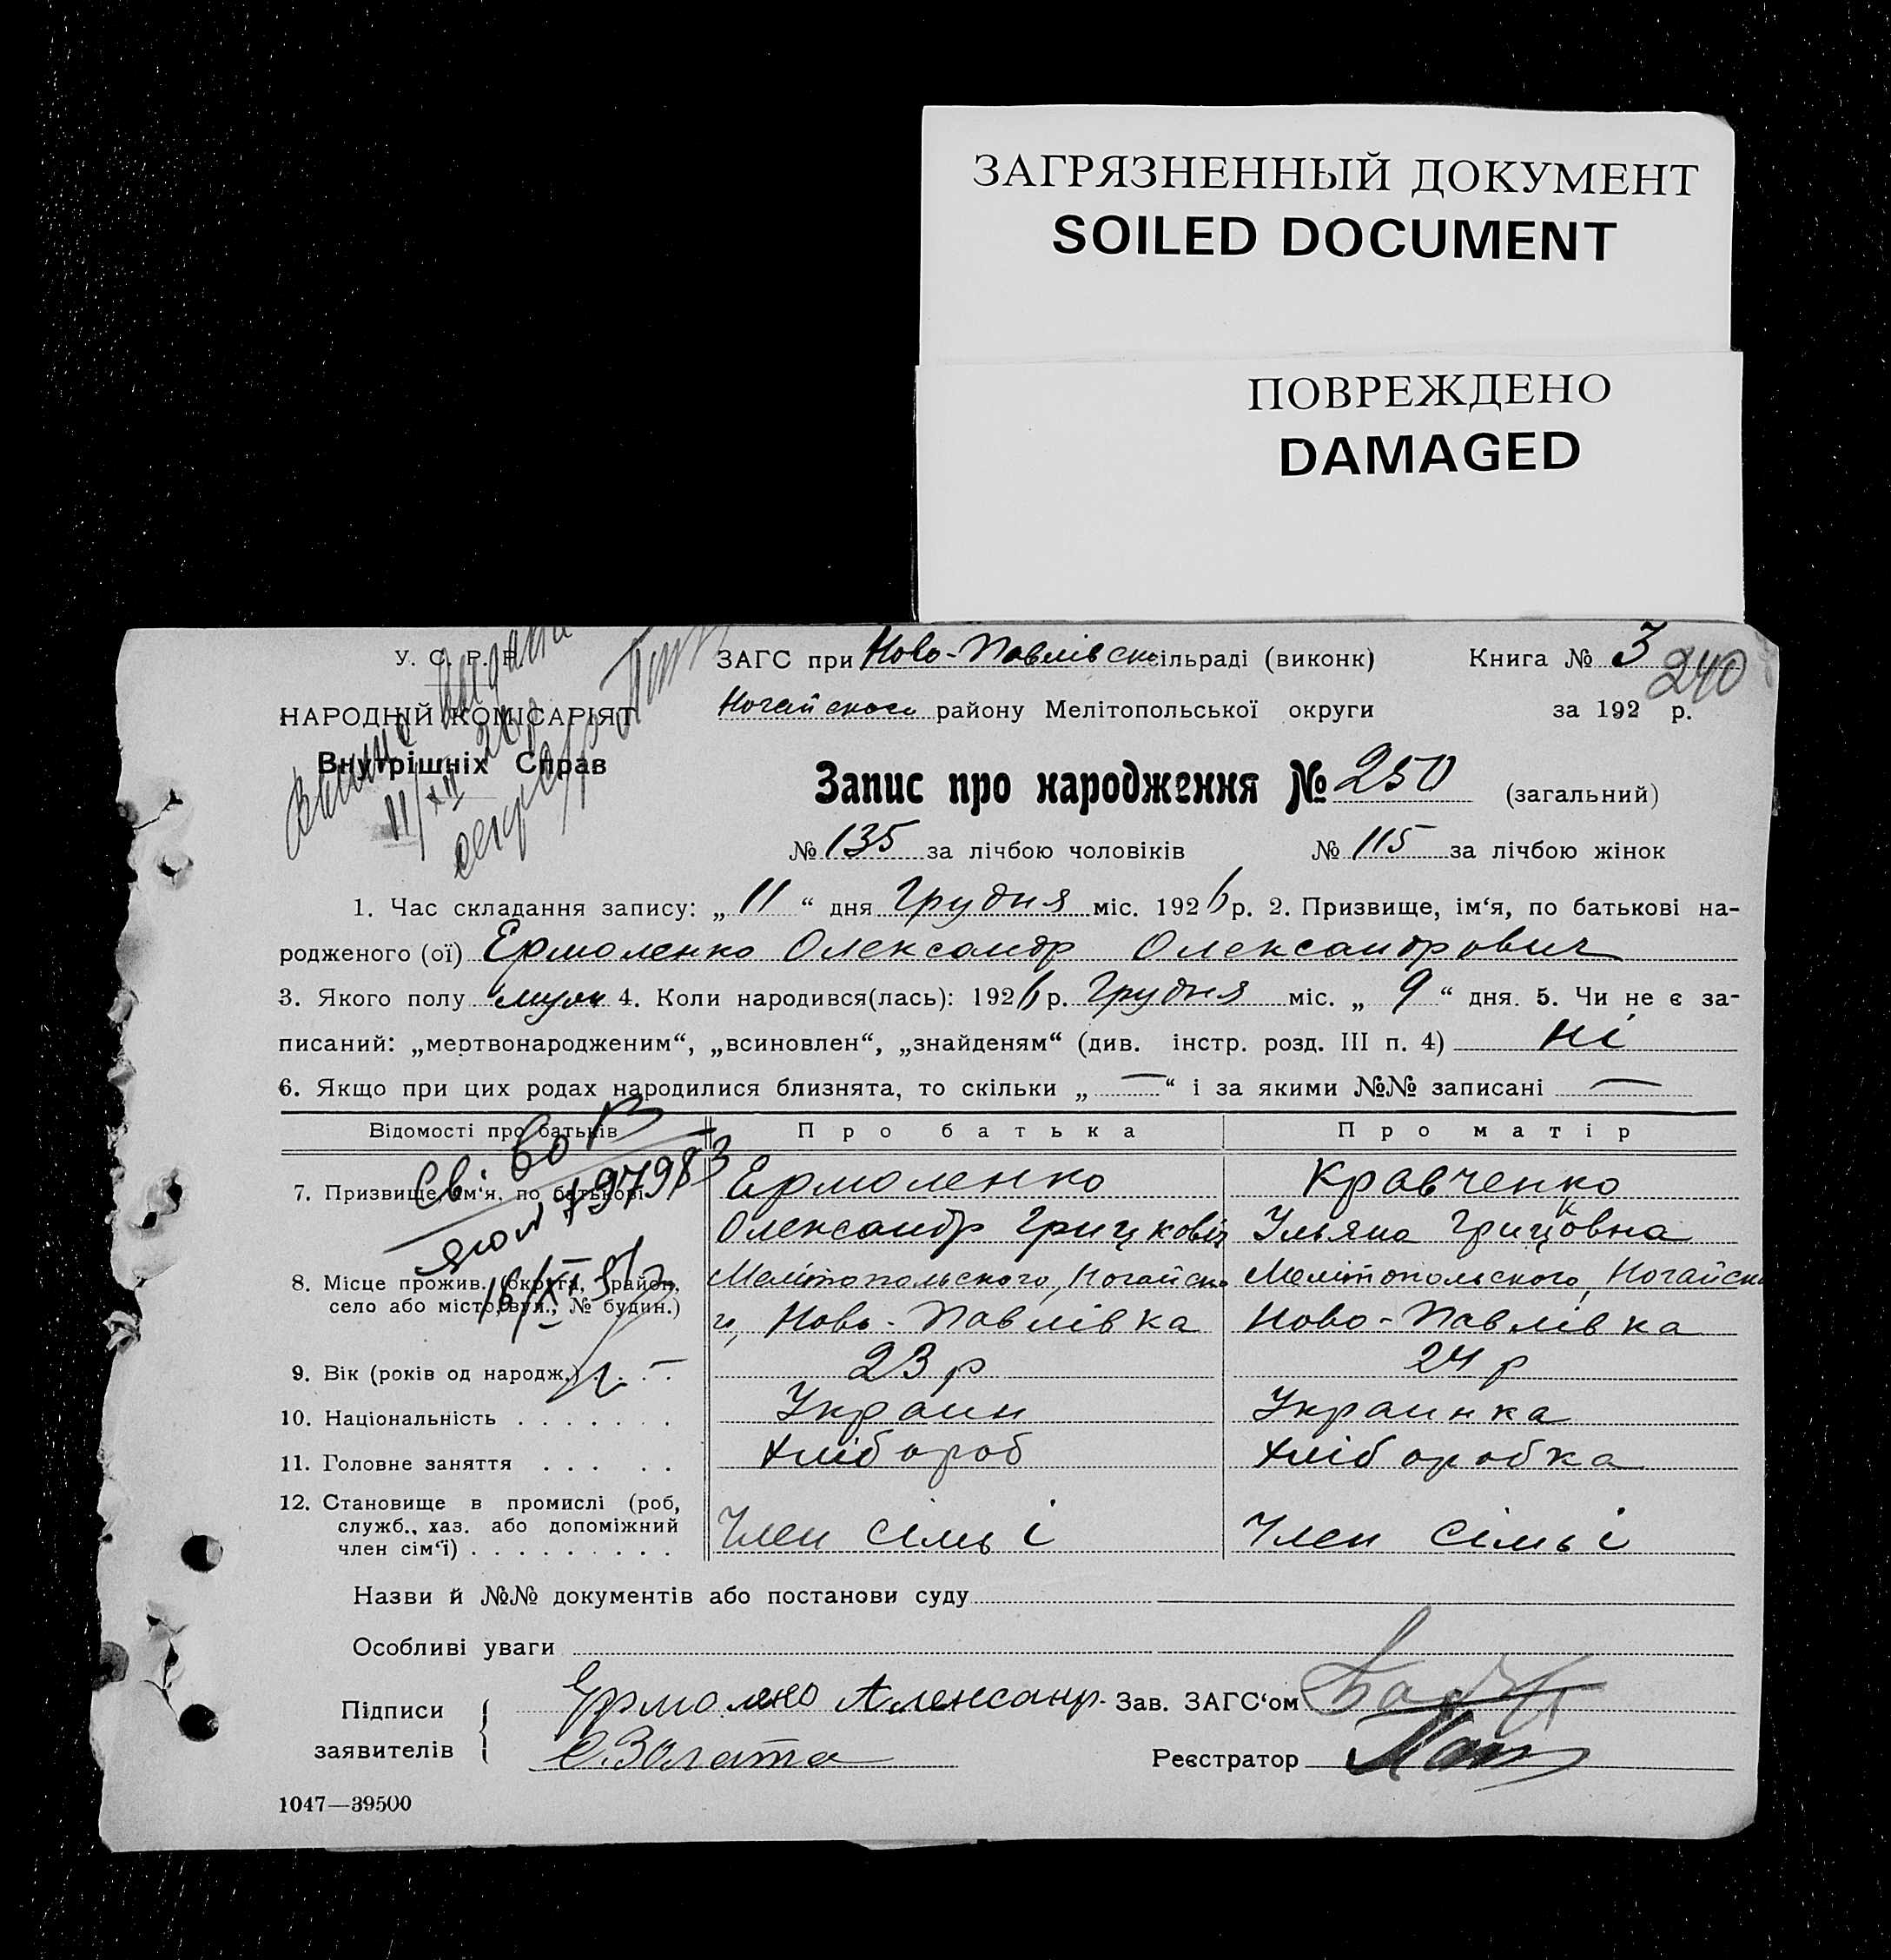 ЗАГРЯЗНЕННЫЙ ДОКУМЕНТ
SOILED DOCUMENT
ПОВРЕЖДЕНО
DAMAGED
У. С. Р. Р.
ЗАГС при Ново-Павлівск сільраді (виконк) Книга № 3
240
НАРОДНІЙ КОМІСАРІЯТ
Ногайского району Мелітопольської округи за 192 р.
Внутрішніх Справ
11/XII 26
Запис про народження № 250 (загальний)
№ 135 за лічбою чоловіків № 115 за лічбою жінок
1. Час складання запису: „ 11 “ дня Грудня міс. 1926 р. 2. Призвище, ім‘я, по батькові на-
родженого (ої) Ермоленко Олександр Олександрович
3. Якого полу муж 4. Коли народився(лась): 1926 р. Грудня міс. „ 9 “ дня. 5. Чи не є за-
писаний: „мертвонародженим“, „всиновлен“, „знайденям“ (див. інстр. розд. III п. 4) ні
6. Якщо при цих родах народилися близнята, то скільки „ — “ і за якими №№ записані —
Відомості про батьків Про батька Про матір
7. Призвище, ім‘я, по батькові Ермоленко Кравченко
Олександр Грицковіч Ульяна Грицковна
8. Місце прожив. (округа, район, Мелітопольского, Ногайско Мелітопольского, Ногайск
село або місто, вул., № будин.) го, Ново-Павлівка Ново-Павлівка
9. Вік (років од народж.) . . . 23 р 24 р
10. Національність . . . . . . . Украин Украинка
11. Головне заняття . . . . . Хлібороб Хліборобка
12. Становище в промислі (роб,
служб., хаз. або допоміжний
член сім‘ї) . . . . . . . . . Член сімьі Член сімьі
Назви й №№ документів або постанови суду
Особливі уваги
Підписи Ермолено Александр. Зав. ЗАГС‘ом
заявителів Золата
Реєстратор
1047—39500